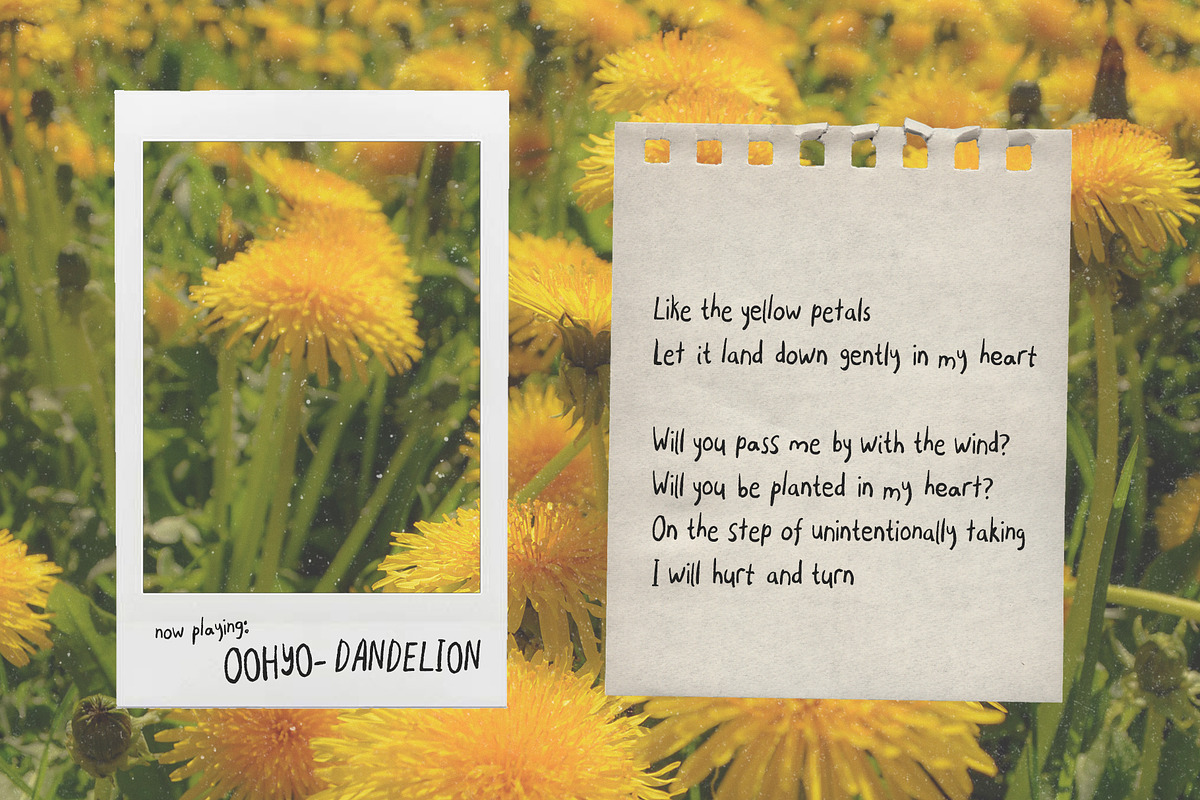 now playing:
OOHYO- DANDELION
Like the yellow petals
Let it land down gently in my heart
Will you pass me by with the wind?
Will you be planted in my heart?
On the step of unintentionally taking
I will hurt and turn